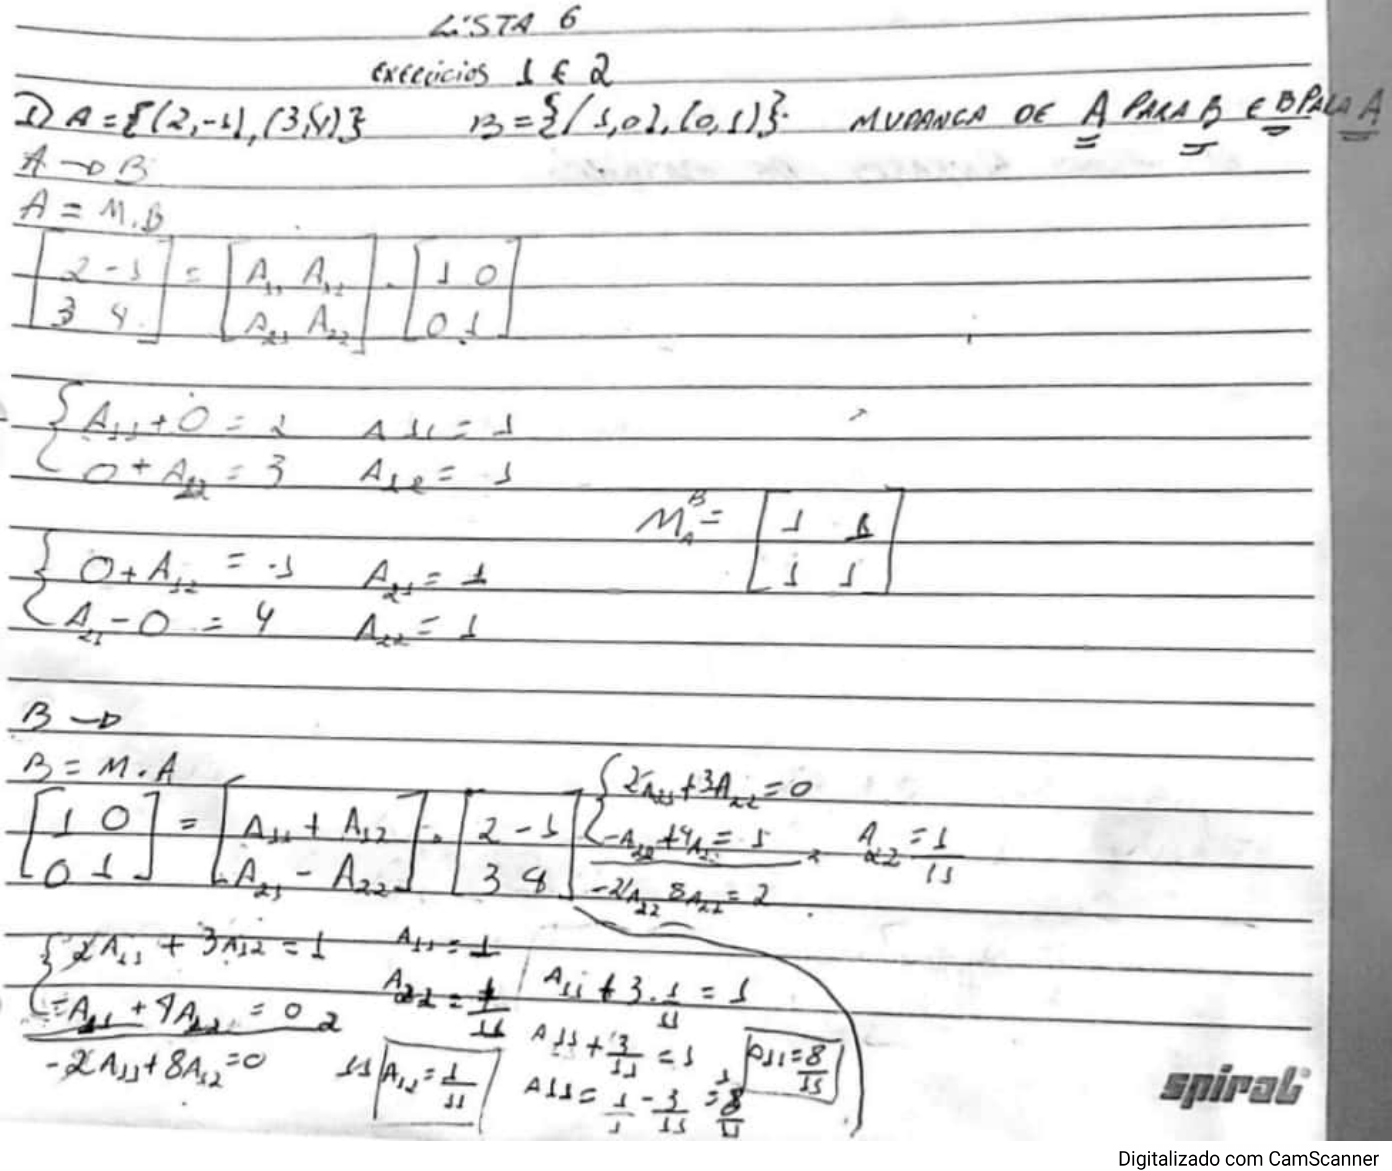 LISTA 6
EXERCICIOS 1 E 2
1) A = {(2,-1), (3,4)} B = {(1,0), (0,1)}. MUDANCA DE A PARA B E B PARA A
A → B
A = M.B
[2 -1 = [A11 A12 . [1 0
3 4] A21 A22] 0 1]
{ A11 + 0 = 2 A11 = 1
0 + A12 = 3 A12 = 1
M_A^B = [1 1
1 1]
{ 0 + A12 = -1 A21 = 1
A21 - 0 = 4 A22 = 1
B →
B = M.A
[1 0 = [A11 + A12 . [2 -1
0 1] A21 - A22] 3 4]
{ 2A21 + 3A22 = 0
-A22 + 4A = 1 A22 = 1/11
-2A22 8A22 = 2
{ 2A11 + 3A12 = 1 A11 = 1
-A11 + 4A22 = 0 2 A22 = 1/11
-2A11 + 8A12 = 0 11 A12 = 1/11
A11 + 3.1/11 = 1
A11 + 3/11 = 1, A11 = 8/11
A11 = 1/1 - 3/11 = 8/11
spiral
Digitalizado com CamScanner